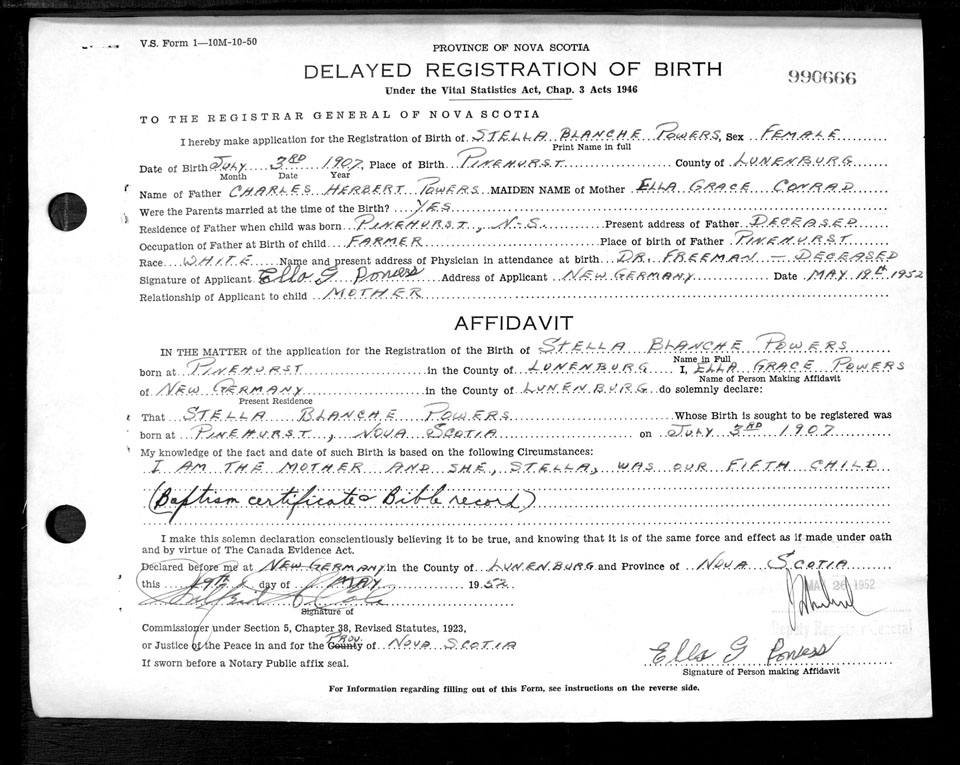 V.S. Form 1—10M-10-50
PROVINCE OF NOVA SCOTIA
DELAYED REGISTRATION OF BIRTH
990666
Under the Vital Statistics Act, Chap. 3 Acts 1946
TO THE REGISTRAR GENERAL OF NOVA SCOTIA
I hereby make application for the Registration of Birth of STELLA BLANCHE POWERS, Sex FEMALE
Print Name in full
Date of Birth July 3RD 1907, Place of Birth PINEHURST County of LUNENBURG
Month Date Year
Name of Father CHARLES HERBERT POWERS MAIDEN NAME of Mother ELLA GRACE CONRAD
Were the Parents married at the time of the Birth? YES
Residence of Father when child was born PINEHURST, N-S. Present address of Father DECEASED
Occupation of Father at Birth of child FARMER Place of birth of Father PINEHURST
Race WHITE Name and present address of Physician in attendance at birth DR. FREEMAN — DECEASED
Signature of Applicant Ella G Powers Address of Applicant NEW GERMANY Date MAY 19th 1952
Relationship of Applicant to child MOTHER
AFFIDAVIT
IN THE MATTER of the application for the Registration of the Birth of STELLA BLANCHE POWERS
Name in Full
born at PINEHURST in the County of LUNENBURG I, ELLA GRACE POWERS
Name of Person Making Affidavit
of NEW GERMANY in the County of LUNENBURG do solemnly declare:
Present Residence
That STELLA BLANCHE POWERS Whose Birth is sought to be registered was
born at PINEHURST, NOVA SCOTIA on JULY 3RD 1907
My knowledge of the fact and date of such Birth is based on the following Circumstances:
I AM THE MOTHER AND SHE, STELLA, WAS OUR FIFTH CHILD
(Baptism certificate & Bible record)
I make this solemn declaration conscientiously believing it to be true, and knowing that it is of the same force and effect as if made under oath
and by virtue of The Canada Evidence Act.
Declared before me at NEW GERMANY in the County of LUNENBURG and Province of NOVA SCOTIA
this 19th day of MAY 1952
MAY 26 1952
Signature of
Deputy Registrar General
Commissioner under Section 5, Chapter 38, Revised Statutes, 1923,
or Justice of the Peace in and for the County PROV. of NOVA SCOTIA
Ella G Powers
If sworn before a Notary Public affix seal.
Signature of Person making Affidavit
For Information regarding filling out of this Form, see instructions on the reverse side.